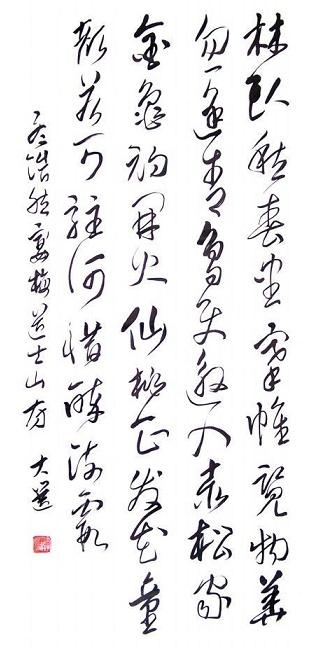 林卧愁春盡搴帷覽物華
忽逢青鳥使邀入赤松家
金竈初開火仙桃正發花童
顏若可駐何惜醉流霞
孟浩然宴梅道士山房 大